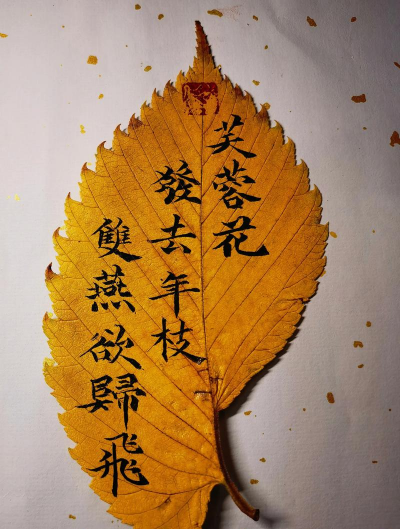 芙蓉花
發去年枝
雙燕欲歸飛